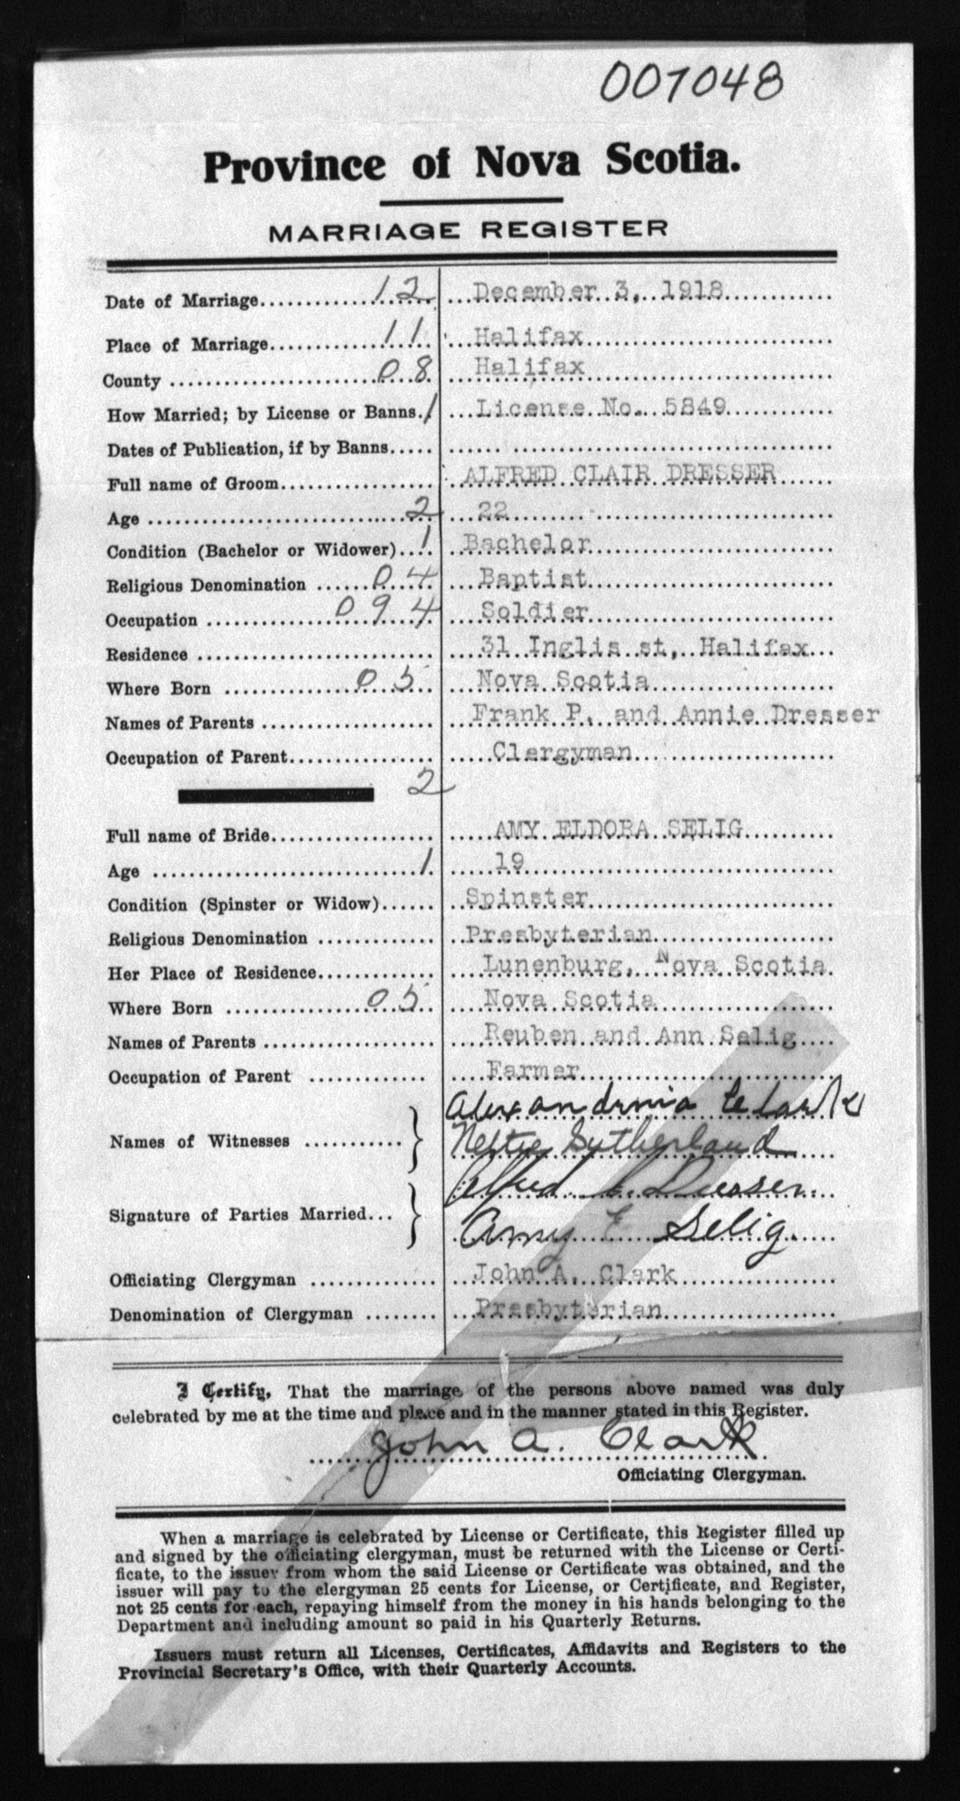 007048
Province of Nova Scotia.
MARRIAGE REGISTER
Date of Marriage............12.. ...December 3, 1918............
Place of Marriage............11.. ...Halifax............
County ............08.. ...Halifax............
How Married; by License or Banns..1 ...License No. 5849............
Dates of Publication, if by Banns..... ............
Full name of Groom................. ALFRED CLAIR DRESSER......
Age ............2.. ...22............
Condition (Bachelor or Widower)..1.. Bachelor............
Religious Denomination ......04.. ...Baptist............
Occupation ............094 ...Soldier............
Residence ............ ...31 Inglis st, Halifax...
Where Born ............05.. ...Nova Scotia............
Names of Parents ............ ...Frank P. and Annie Dresser
Occupation of Parent............ ....Clergyman............
2
Full name of Bride............ .....AMY ELDORA SELIG............
Age ............1. .....19............
Condition (Spinster or Widow)...... ..Spinster............
Religious Denomination ............ ..Presbyterian............
Her Place of Residence............ ....Lunenburg, Nova Scotia.
Where Born ............05.. ....Nova Scotia............
Names of Parents ............ ....Reuben and Ann Selig....
Occupation of Parent ............ ....Farmer............
Alexandrina Clark
Names of Witnesses ...........} Nettie Sutherland
Alfred C. Dresser
Signature of Parties Married...} Amy E Selig
Officiating Clergyman ............ ...John A. Clark............
Denomination of Clergyman ........ ...Presbyterian............
I Certify, That the marriage of the persons above named was duly
celebrated by me at the time and place and in the manner stated in this Register.
John A. Clark
Officiating Clergyman.
When a marriage is celebrated by License or Certificate, this Register filled up
and signed by the officiating clergyman, must be returned with the License or Certi-
ficate, to the issuer from whom the said License or Certificate was obtained, and the
issuer will pay to the clergyman 25 cents for License, or Certificate, and Register,
not 25 cents for each, repaying himself from the money in his hands belonging to the
Department and including amount so paid in his Quarterly Returns.
Issuers must return all Licenses, Certificates, Affidavits and Registers to the
Provincial Secretary's Office, with their Quarterly Accounts.